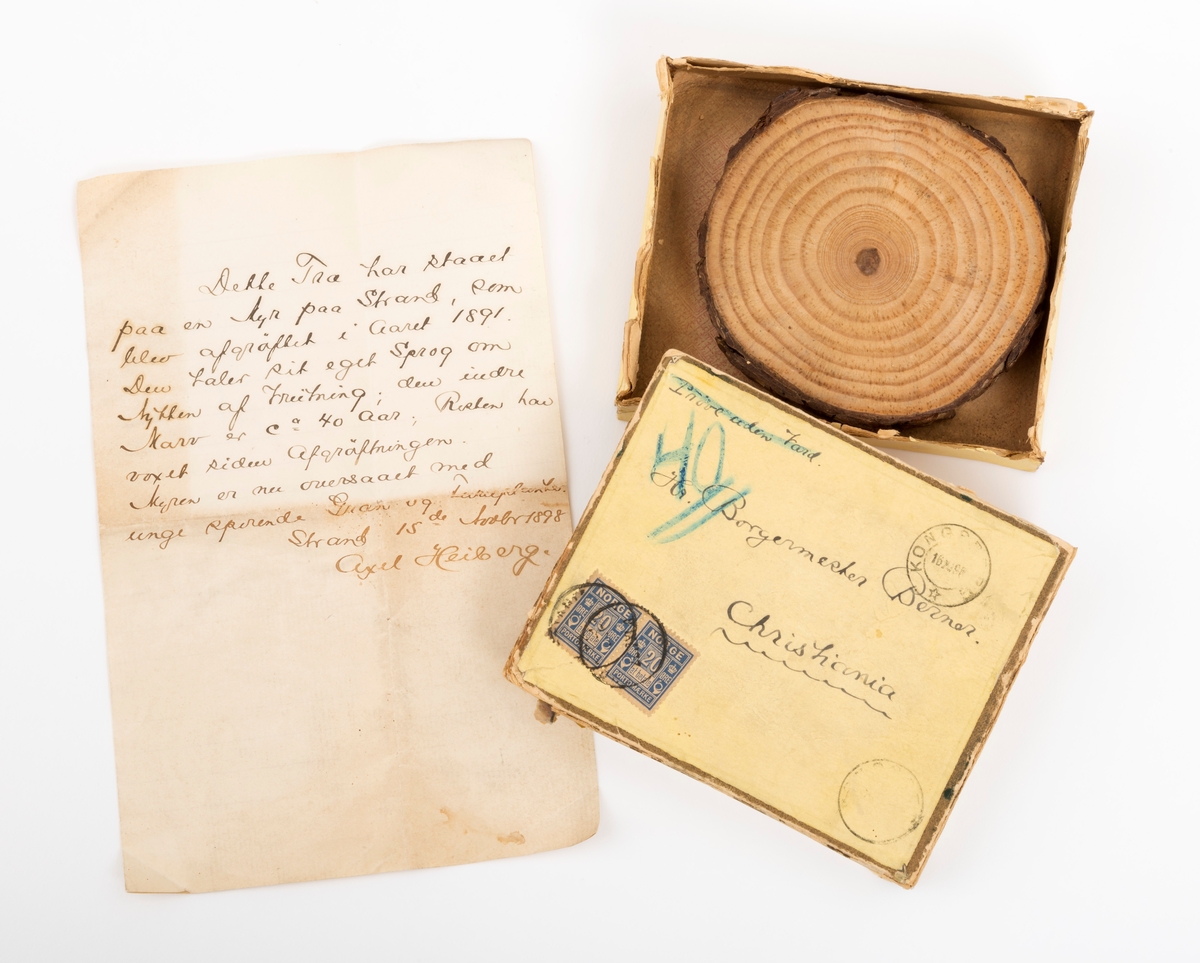 Dette Træ har staaet
paa en Myr paa Strand, som
blev afgrøftet i Aaret 1891.
Den taler sit eget Sprog om
Nytten af Grøftning; den indre
Marv er ca 40 Aar; Resten har
voxet siden Afgrøftningen.
Myren er nu oversaaet med
unge spirende Gran og Furuplanter.
Strand 15de Novbr 1898
Axel Heiberg.
Prøve uden Værd.
40
Hr. Borgermester Berner.
Christiania
KONGS
NORGE
20
PORTOMÆRKE
NORGE
20
PORTOMÆRKE